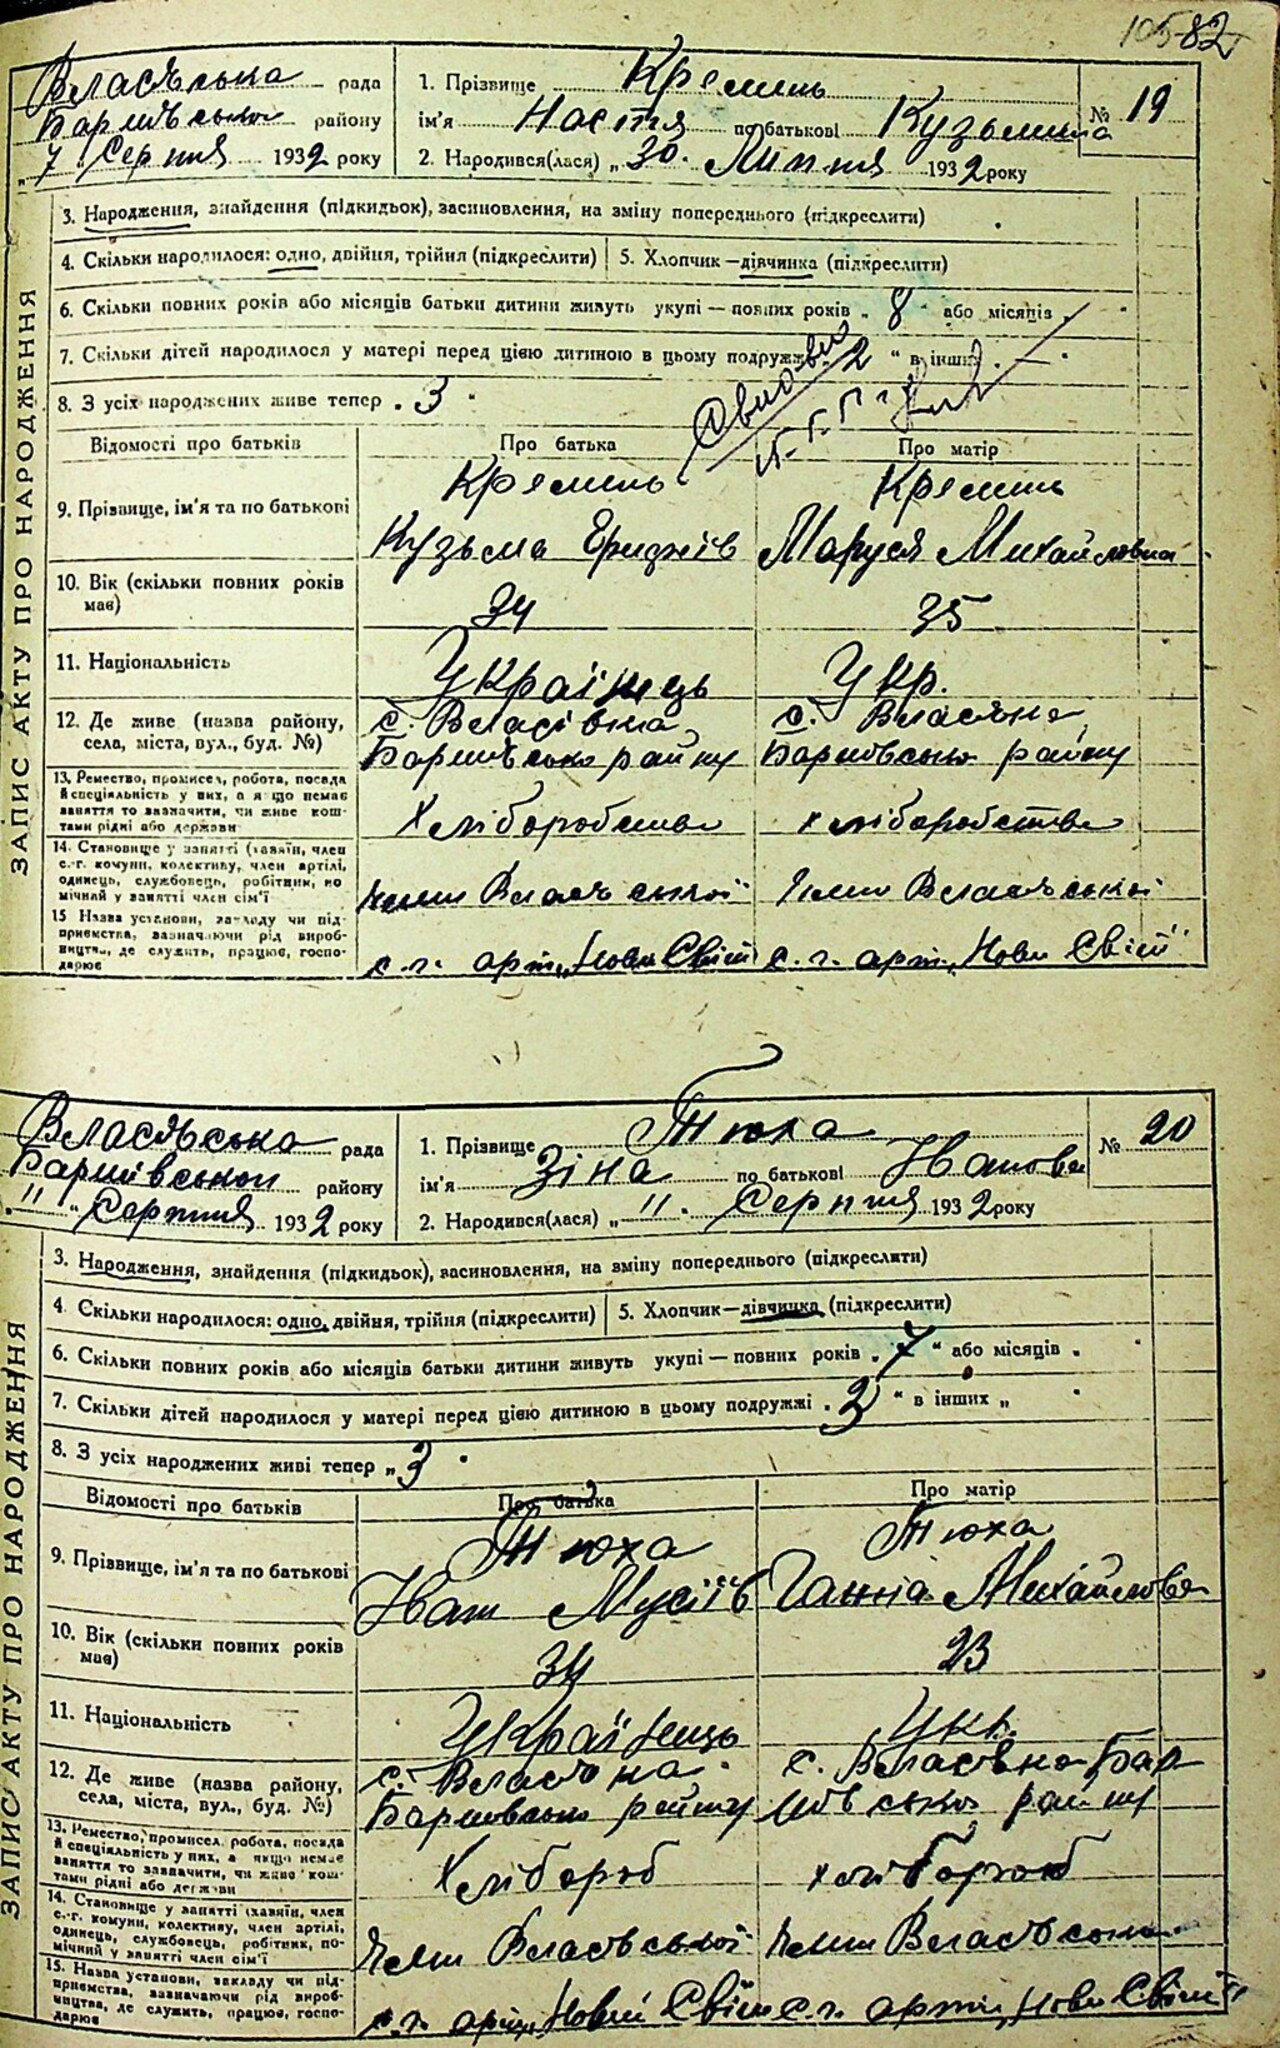 105 82
Власівська рада
Баришівської району
„7 Серпня 1932 року
1. Прізвище Кремінь
ім'я Настя по батькові Кузьмина
2. Народився(лася) „30. Липня 1932 року
№ 19
ЗАПИС АКТУ ПРО НАРОДЖЕННЯ
3. Народження, знайдення (підкидьок), засиновлення, на зміну попереднього (підкреслити)
4. Скільки народилося: одно, двійня, трійня (підкреслити) 5. Хлопчик—дівчинка (підкреслити)
6. Скільки повних років або місяців батьки дитини живуть укупі — повних років „ 8 " або місяців „
7. Скільки дітей народилося у матері перед цією дитиною в цьому подружжі 2 " в інших . —
8. З усіх народжених живе тепер . 3 "
Відомості про батьків Про батька Про матір
9. Прізвище, ім'я та по батькові
Кремінь Кремінь
Кузьма Маруся Михайловна
10. Вік (скільки повних років має)
34 35
11. Національність Українець Укр.
12. Де живе (назва району, села, міста, вул., буд. №)
с. Власівка с. Власівка
Баришівсько району Баришовсько району
13. Ремество, промисел, робота, посада й спеціяльність у них, а якщо немає заняття то зазначити, чи живе коштами рідні або держави
Хліборобство хліборобство
14. Становище у занятті (хазяїн, член с.-г. комуни, колективу, член артілі, одинець, службовець, робітник, помічний у занятті член сім'ї
член Власівської член Власівської
15 Назва установи, закладу чи підприємства, зазначаючи рід виробництва, де служить, працює, господарює
с. г. арт. „Нови Світ с. г. арт. „Нови Світ"
Власівська рада
Баришівської району
„11„ Серпня 1932 року
1. Прізвище Тюха
ім'я Зіна по батькові Иванова
2. Народився(лася) „11. Серпня 1932 року
№ 20
ЗАПИС АКТУ ПРО НАРОДЖЕННЯ
3. Народження, знайдення (підкидьок), засиновлення, на зміну попереднього (підкреслити)
4. Скільки народилося: одно, двійня, трійня (підкреслити) 5. Хлопчик—дівчинка (підкреслити)
6. Скільки повних років або місяців батьки дитини живуть укупі — повних років „ 7 " або місяців „
7. Скільки дітей народилося у матері перед цією дитиною в цьому подружжі . " в інших „
8. З усіх народжених живі тепер „ 3 "
Відомості про батьків Про батька Про матір
9. Прізвище, ім'я та по батькові
Тюха Тюха
Иван Мусіїв Ганна Михайлова
10. Вік (скільки повних років має)
34 23
11. Національність Українець Укр.
12. Де живе (назва району, села, міста, вул., буд. №)
с. Власівка с. Власівка Бар
Баришовсько району шовсько району
13. Ремество, промисел, робота, посада й спеціяльність у них, а якщо немає заняття то зазначити, чи живе коштами рідні або держави
Хлібороб хлібороб
14. Становище у занятті (хазяїн, член с.-г. комуни, колективу, член артілі, одинець, службовець, робітник, помічний у занятті член сім'ї
член Власівської член Власівської
15. Назва установи, закладу чи підприємства, зазначаючи рід виробництва, де служить, працює, господарює
с. г. арт. „Новий Світ с. г. арт. „Нови Світ"